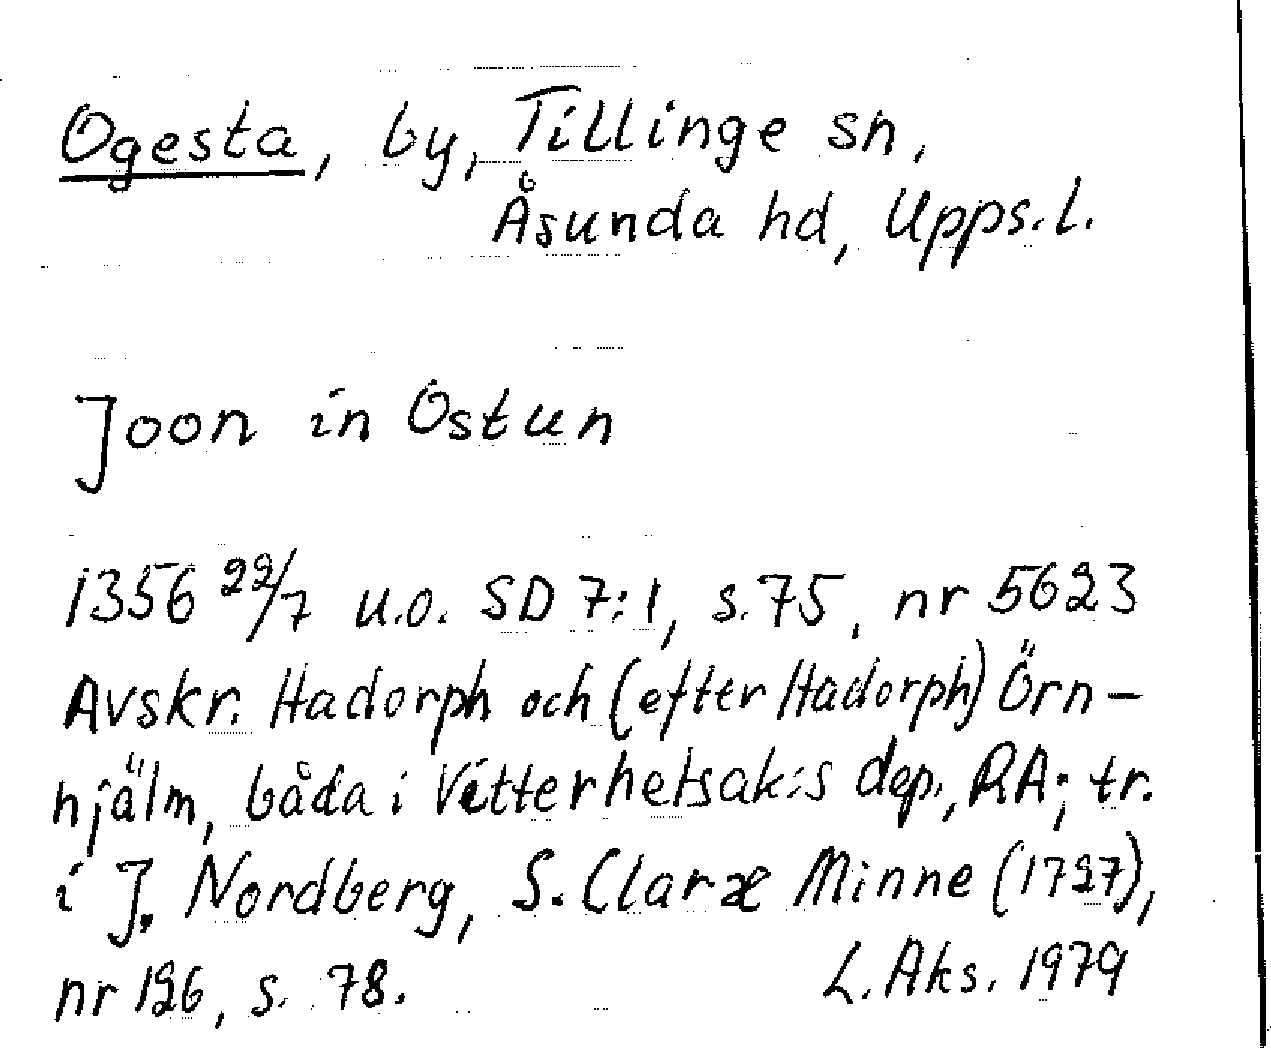 Ogesta, by, Tillinge sn,
Åsunda hd, Upps. l.
Joon in Ostun
1356 22/7 u.o. SD 7:1, s. 75, nr 5623
Avskr. Hadorph och (efter Hadorph) Örn-
hjälm, båda i Vitterhetsak:s dep., RA; tr.
i J. Nordberg, S. Claræ Minne (1727),
nr 126, s. 78.
L. Aks. 1979